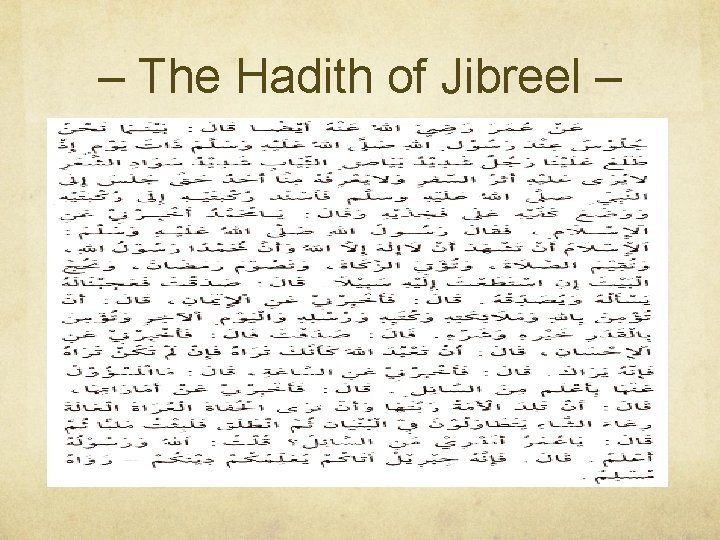 – The Hadith of Jibreel –
عَنْ عُمَرَ رَضِيَ اللهُ عَنْهُ أَيْضًا قَالَ : بَيْنَمَا نَحْنُ
جُلُوْسٌ عِنْدَ رَسُوْلِ اللهِ صَلَّى اللهُ عَلَيْهِ وَسَلَّمَ ذَاتَ يَوْمٍ إِذْ
طَلَعَ عَلَيْنَا رَجُلٌ شَدِيْدُ بَيَاضِ الثِّيَابِ شَدِيْدُ سَوَادِ الشَّعْرِ
لاَ يُرَى عَلَيْهِ أَثَرُ السَّفَرِ وَلاَ يَعْرِفُهُ مِنَّا أَحَدٌ حَتَّى جَلَسَ إِلَى
النَّبِيِّ صلى الله عليه وسلم فَأَسْنَدَ رُكْبَتَيْهِ إِلَى رُكْبَتَيْهِ
وَوَضَعَ كَفَّيْهِ عَلَى فَخِذَيْهِ وَقَالَ : يَا مُحَمَّدُ أَخْبِرْنِيْ عَنِ
الْإِسْلاَمِ ، فَقَالَ رَسُوْلُ اللهِ صَلَّى اللهُ عَلَيْهِ وَسَلَّمَ :
اَلْإِسْلاَمُ أَنْ تَشْهَدَ أَنْ لاَ إِلَهَ إِلاَّ اللهُ وَأَنَّ مُحَمَّدًا رَسُوْلُ اللهِ ،
وَتُقِيْمَ الصَّلاَةَ ، وَتُؤْتِيَ الزَّكَاةَ ، وَتَصُوْمَ رَمَضَانَ ، وَتَحُجَّ
الْبَيْتَ إِنِ اسْتَطَعْتَ إِلَيْهِ سَبِيْلاً . قَالَ : صَدَقْتَ فَعَجِبْنَا لَهُ
يَسْأَلُهُ وَيُصَدِّقُهُ . قَالَ : فَأَخْبِرْنِيْ عَنِ الْإِيْمَانِ ، قَالَ : أَنْ
تُؤْمِنَ بِاللهِ وَمَلاَئِكَتِهِ وَكُتُبِهِ وَرُسُلِهِ وَالْيَوْمِ الْآخِرِ وَتُؤْمِنَ
بِالْقَدَرِ خَيْرِهِ وَشَرِّهِ . قَالَ : صَدَقْتَ قَالَ : فَأَخْبِرْنِيْ عَنِ
الْإِحْسَانِ ، قَالَ : أَنْ تَعْبُدَ اللهَ كَأَنَّكَ تَرَاهُ فَإِنْ لَمْ تَكُنْ تَرَاهُ
فَإِنَّهُ يَرَاكَ . قَالَ : فَأَخْبِرْنِيْ عَنِ السَّاعَةِ ، قَالَ : مَا الْمَسْؤُوْلُ
عَنْهَا بِأَعْلَمَ مِنَ السَّائِلِ . قَالَ : فَأَخْبِرْنِيْ عَنْ أَمَارَاتِهَا ،
قَالَ : أَنْ تَلِدَ الْأَمَةُ رَبَّتَهَا وَأَنْ تَرَى الْحُفَاةَ الْعُرَاةَ الْعَالَةَ
رِعَاءَ الشَّاءِ يَتَطَاوَلُوْنَ فِي الْبُنْيَانِ ثُمَّ انْطَلَقَ فَلَبِثْتُ مَلِيًّا ثُمَّ
قَالَ : يَا عُمَرُ أَتَدْرِيْ مَنِ السَّائِلُ ؟ قُلْتُ : اللهُ وَرَسُوْلُهُ
أَعْلَمُ . قَالَ . فَإِنَّهُ جِبْرِيْلُ أَتَاكُمْ يُعَلِّمُكُمْ دِيْنَكُمْ – رَوَاهُ
مُسْلِمٌ .